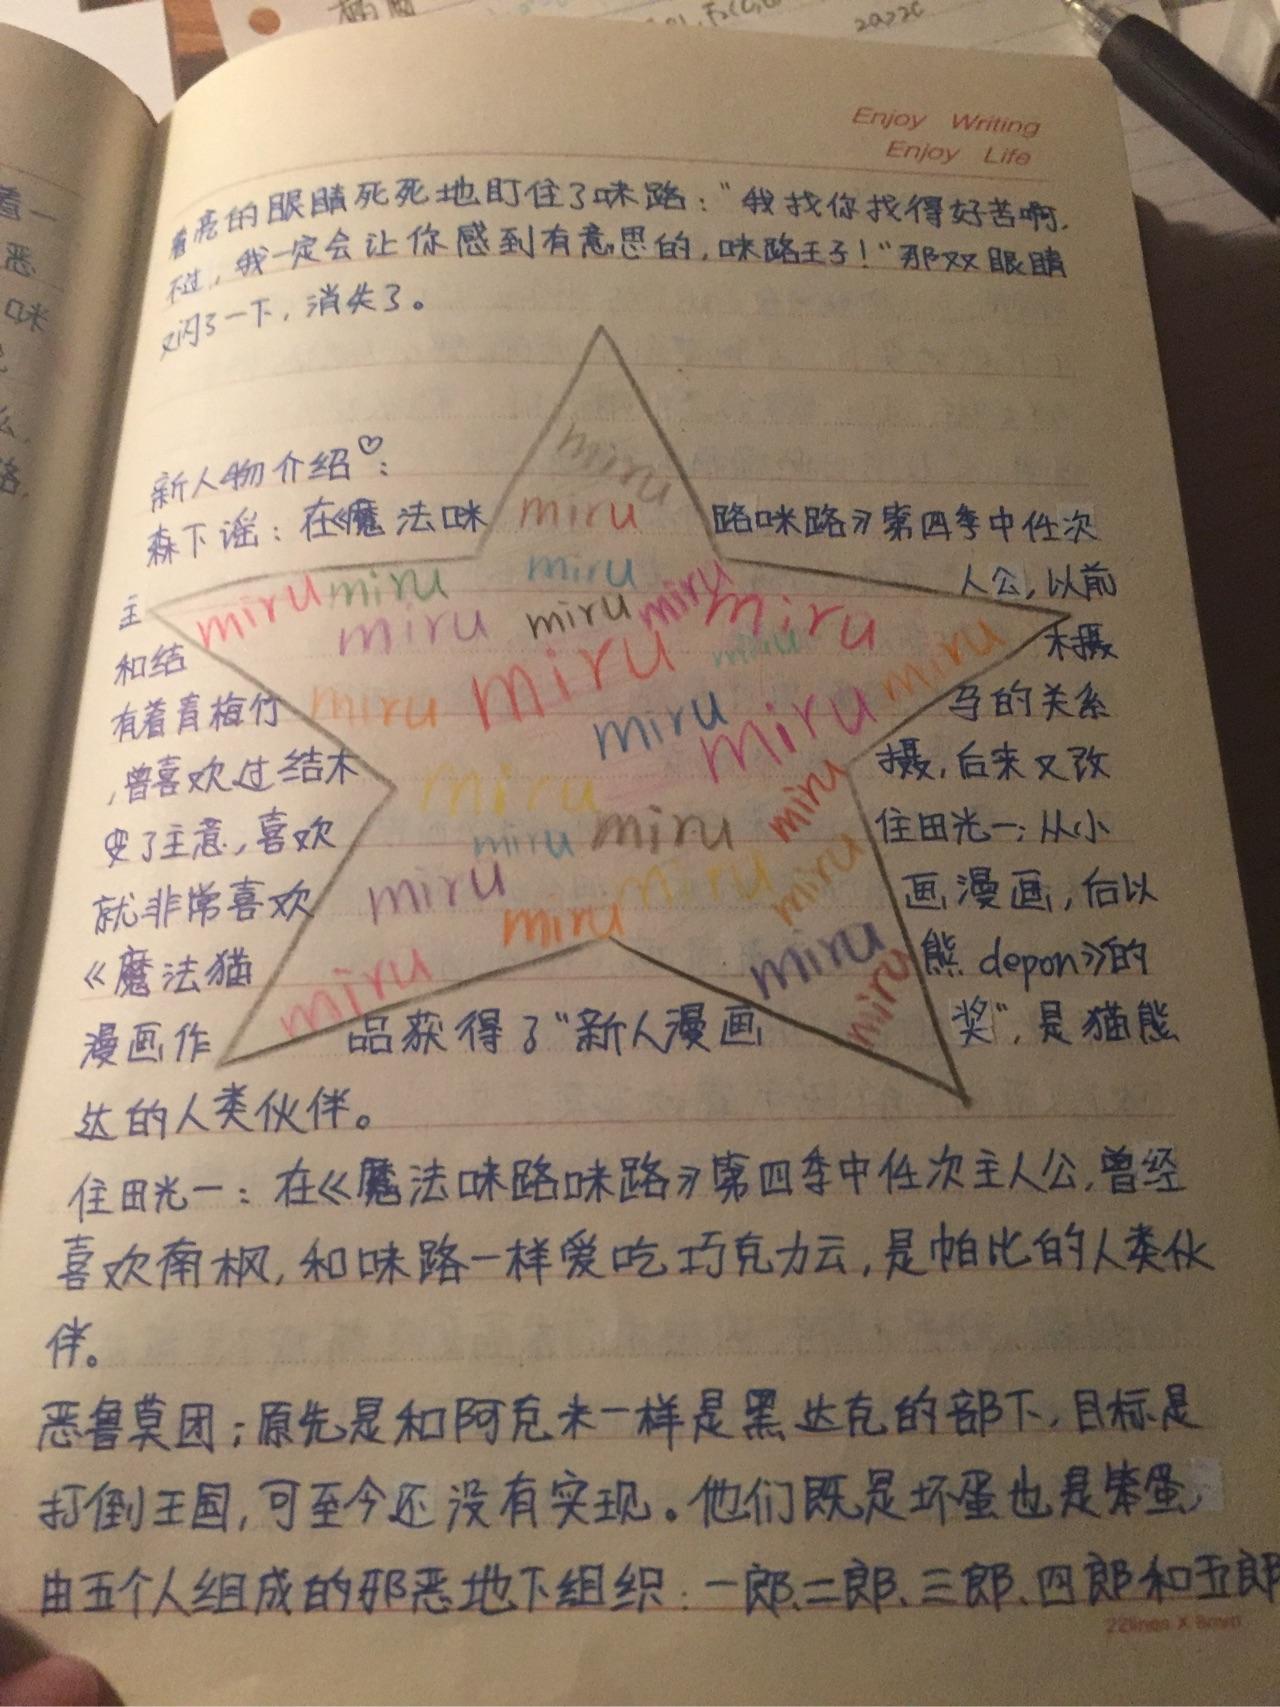 Enjoy Writing
Enjoy Life
着亮的眼睛死死地盯住了咪路：“我找你找得好苦啊，
不过，我一定会让你感到有意思的，咪路王子！”那双眼睛
又闪了一下，消失了。
新人物介绍♡：
森下谣：在《魔法咪路咪路》第四季中任次
主人公，以前
和结木摄
有着青梅竹马的关系
，曾喜欢过结木摄，后来又改
变了主意，喜欢住田光一；从小
就非常喜欢画漫画，后以
《魔法猫熊depon》的
漫画作品获得了“新人漫画奖”，是猫熊
达的人类伙伴。
住田光一：在《魔法咪路咪路》第四季中任次主人公，曾经
喜欢南枫，和咪路一样爱吃巧克力云，是帕比的人类伙
伴。
恶鲁莫团；原先是和阿克未一样是黑达克的部下，目标是
打倒王国，可至今还没有实现。他们既是坏蛋也是笨蛋，
由五个人组成的邪恶地下组织：一郎、二郎、三郎、四郎和五郎
miru
miru
miru
miru miru miru miru miru miru
miru miru miru miru
miru miru
miru miru miru
miru miru
miru miru miru
miru miru
miru miru
22lines X 8mm